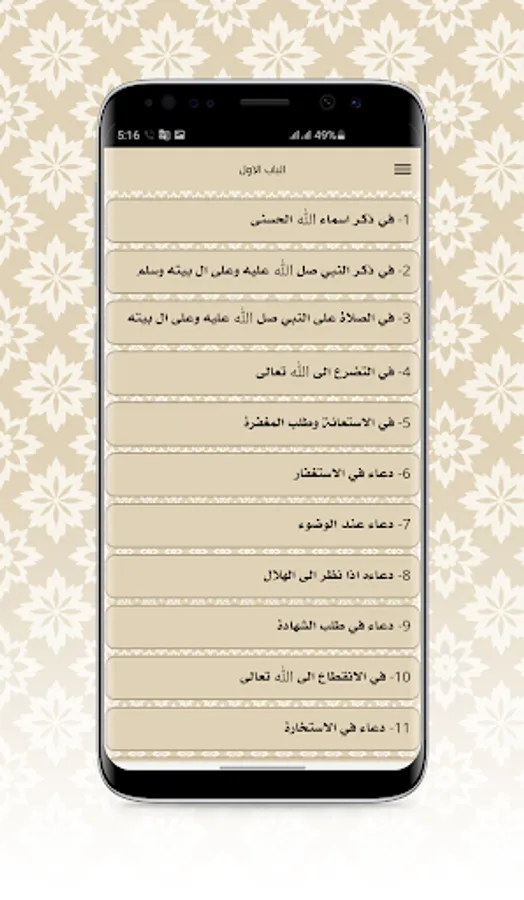 5:16 49%
الباب الاول
1- في ذكر اسماء الله الحسنى
2- في ذكر النبي صل الله عليه وعلى ال بيته وسلم
3- في الصلاة على النبي صل الله عليه وعلى ال بيته
4- في التضرع الى الله تعالى
5- في الاستعانة وطلب المغفرة
6- دعاء في الاستغفار
7- دعاء عند الوضوء
8- دعاءه اذا نظر الى الهلال
9- دعاء في طلب الشهادة
10- في الانقطاع الى الله تعالى
11- دعاء في الاستخارة